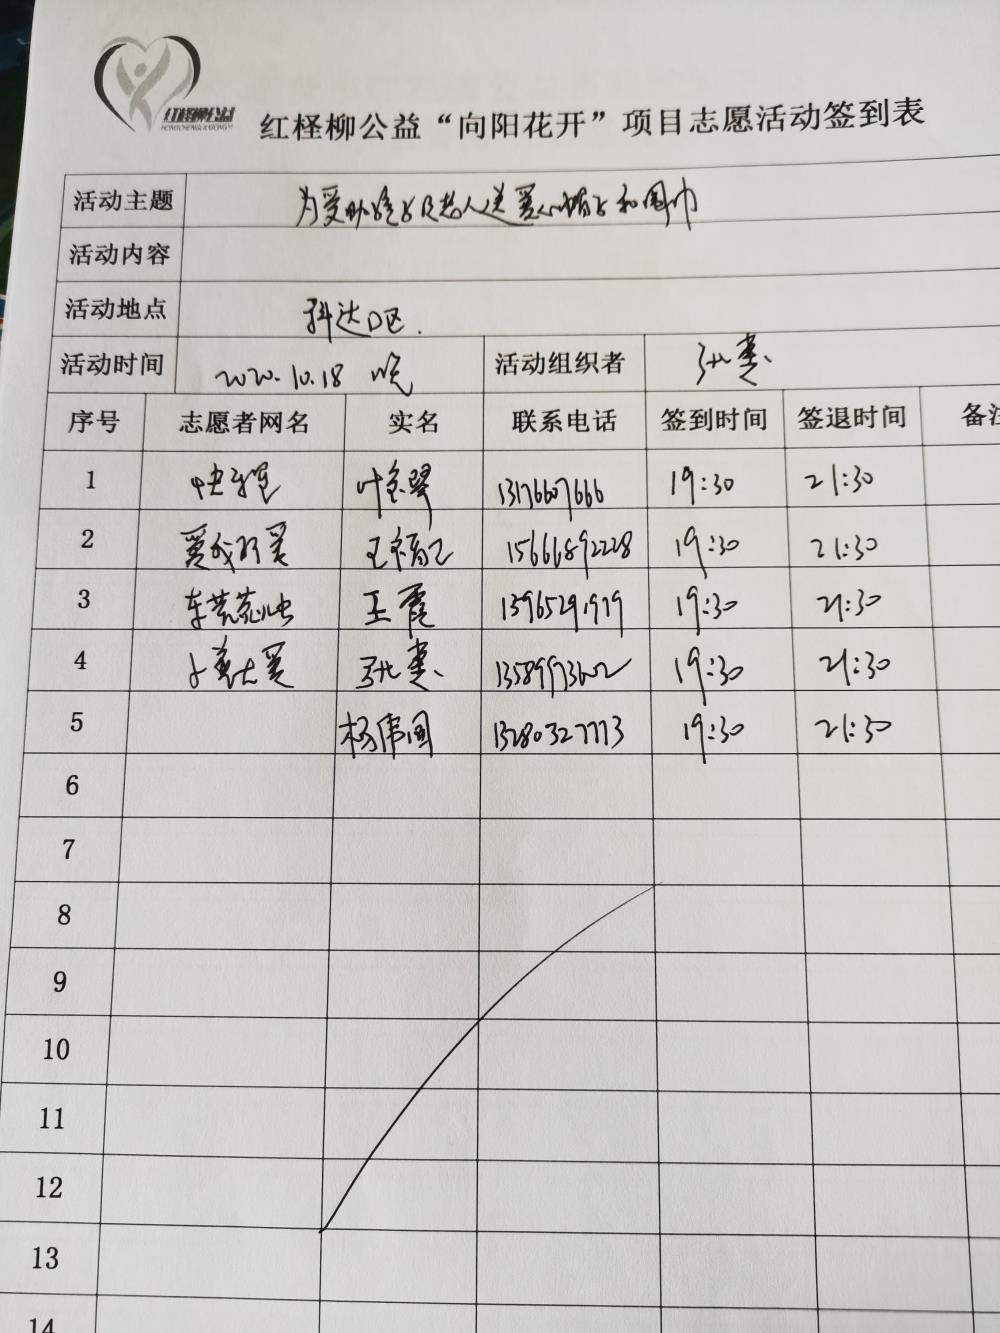 红柽柳公益
红柽柳公益“向阳花开”项目志愿活动签到表
活动主题 为受助孩子及老人送爱心帽子和围巾
活动内容
活动地点 科达D区.
活动时间 2020.10.18 晚 活动组织者 张蕙
序号 志愿者网名 实名 联系电话 签到时间 签退时间 备注
1 叶金琴 13176607666 19:30 21:30
2 爱我所爱 王福己 15666892228 19:30 21:30
3 王霞 13965291919 19:30 21:30
4 小美大爱 张蕙 13589973602 19:30 21:30
5 杨伟国 13280327773 19:30 21:30
6
7
8
9
10
11
12
13
14